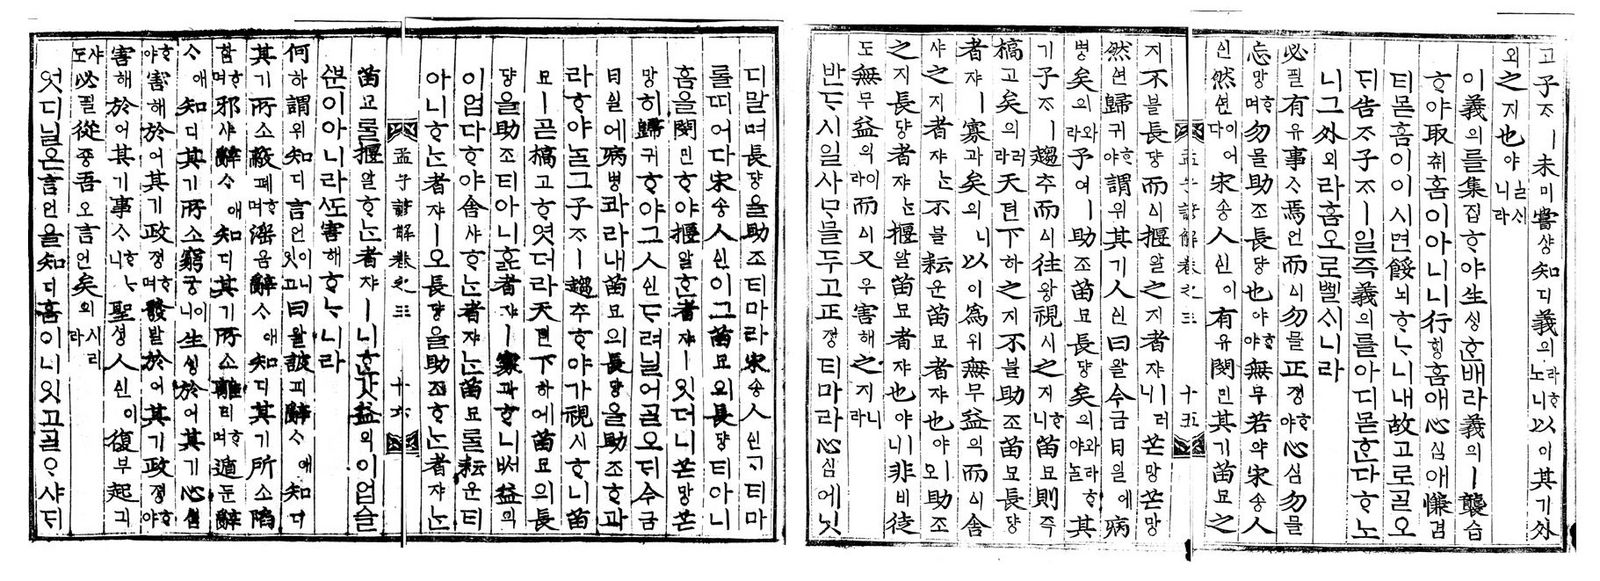 고子ᄌᆞㅣ未미甞샹知디義의라ᄒᆞ노니以이其기外
외之지也야ᄂᆞᆯᄉᆡ니라
이義의를集집ᄒᆞ야生ᄉᆡᆼᄒᆞᆫ배라義의ㅣ襲습
ᄒᆞ야取취홈이아니니行ᄒᆡᆼ홈애心심애慊겸
티몯홈이이시면餒뇌ᄒᆞᄂᆞ니내故고로ᄀᆞᆯ오
ᄃᆡ告고子ᄌᆞㅣ일즉義의를아디몯ᄒᆞᆫ다ᄒᆞ노
니그外외라홈오로ᄡᅦᆯᄉᆡ니라
必필有유事ᄉᆞ焉언而ᅀᅵ勿믈正졍ᄒᆞ야心심勿믈
忘망ᄒᆞ며勿믈助조長댱也야ᄒᆞ야無무若약宋송人
신然연이어다宋송人신이有유閔민其기苗묘之
지不블長댱而ᅀᅵ揠알之지者쟈ㅣ러니芒망芒망
然연歸귀ᄒᆞ야謂위其기人신曰왈今금日일에病
병矣의와라予여ㅣ助조苗묘長댱矣의와라ᄒᆞ야ᄂᆞᆯ其
기子ᄌᆞㅣ趨추而ᅀᅵ往왕視시之지ᄒᆞ니苗묘則즉
槁고矣의러라天텬下하之지不블助조苗묘長댱
者쟈ㅣ寡과矣의니以이爲위無무益익而ᅀᅵ舍
샤之지者쟈ᄂᆞᆫ不블耘운苗묘者쟈也야ㅣ오助조
之지長댱者쟈ᄂᆞᆫ揠알苗묘者쟈也야ㅣ니非비徒
도無무益익이라而ᅀᅵ又우害해之지니라
반ᄃᆞ시일사ᄆᆞ믈두고正졍티마라心심에닛
孟子諺解卷之三 十五
디말며長댱을助조티마라宋송人신ᄀᆞ티마
롤띠어다宋송人신이그苗묘의長댱티아니
홈을閔민ᄒᆞ야揠알ᄒᆞᆫ者쟈ㅣ잇더니芒망芒
망히歸귀ᄒᆞ야그人신ᄃᆞ려닐어ᄀᆞᆯ오ᄃᆡ今금
日일에病병콰라내苗묘의長댱을助조ᄒᆞ과
라ᄒᆞ야ᄂᆞᆯ그子ᄌᆞㅣ趨추ᄒᆞ야가視시ᄒᆞ니苗
묘ㅣ곧槁고ᄒᆞ엿더라天텬下하에苗묘의長
댱을助조티아니ᄒᆞᆯ者쟈ㅣ寡과ᄒᆞ니ᄡᅥ益익
이업다ᄒᆞ야舍샤ᄒᆞᄂᆞᆫ者쟈ᄂᆞᆫ苗묘ᄅᆞᆯ耘운티
아니ᄒᆞᄂᆞᆫ者쟈ㅣ오長댱을助조ᄒᆞᄂᆞᆫ者쟈ᄂᆞᆫ
孟子諺解卷之三 十六
苗묘ᄅᆞᆯ揠알ᄒᆞᄂᆞᆫ者쟈ㅣ니ᄒᆞᆫ갓益익이업슬
ᄲᅮᆫ이아니라ᄯᅩ害해ᄒᆞᄂᆞ니라
何하謂위知디言언이니잇고曰왈詖피辭ᄉᆞ애知디
其기所소蔽폐ᄒᆞ며淫음辭ᄉᆞ애知디其기所소陷
함ᄒᆞ며邪샤辭ᄉᆞ애知디其기所소離리ᄒᆞ며遁둔辭
ᄉᆞ애知디其기所소窮궁이니生ᄉᆡᆼ於어其기心심
ᄒᆞ야害해於어其기政졍ᄒᆞ며發발於어其기政졍ᄒᆞ야
害해於어其기事ᄉᆞᄒᆞᄂᆞ니聖셩人신이復부起긔
샤도必필從죵吾오言언矣의시리라
엇디닐온言언을知디홈이니잇고ᄀᆞᆯᄋᆞ샤ᄃᆡ